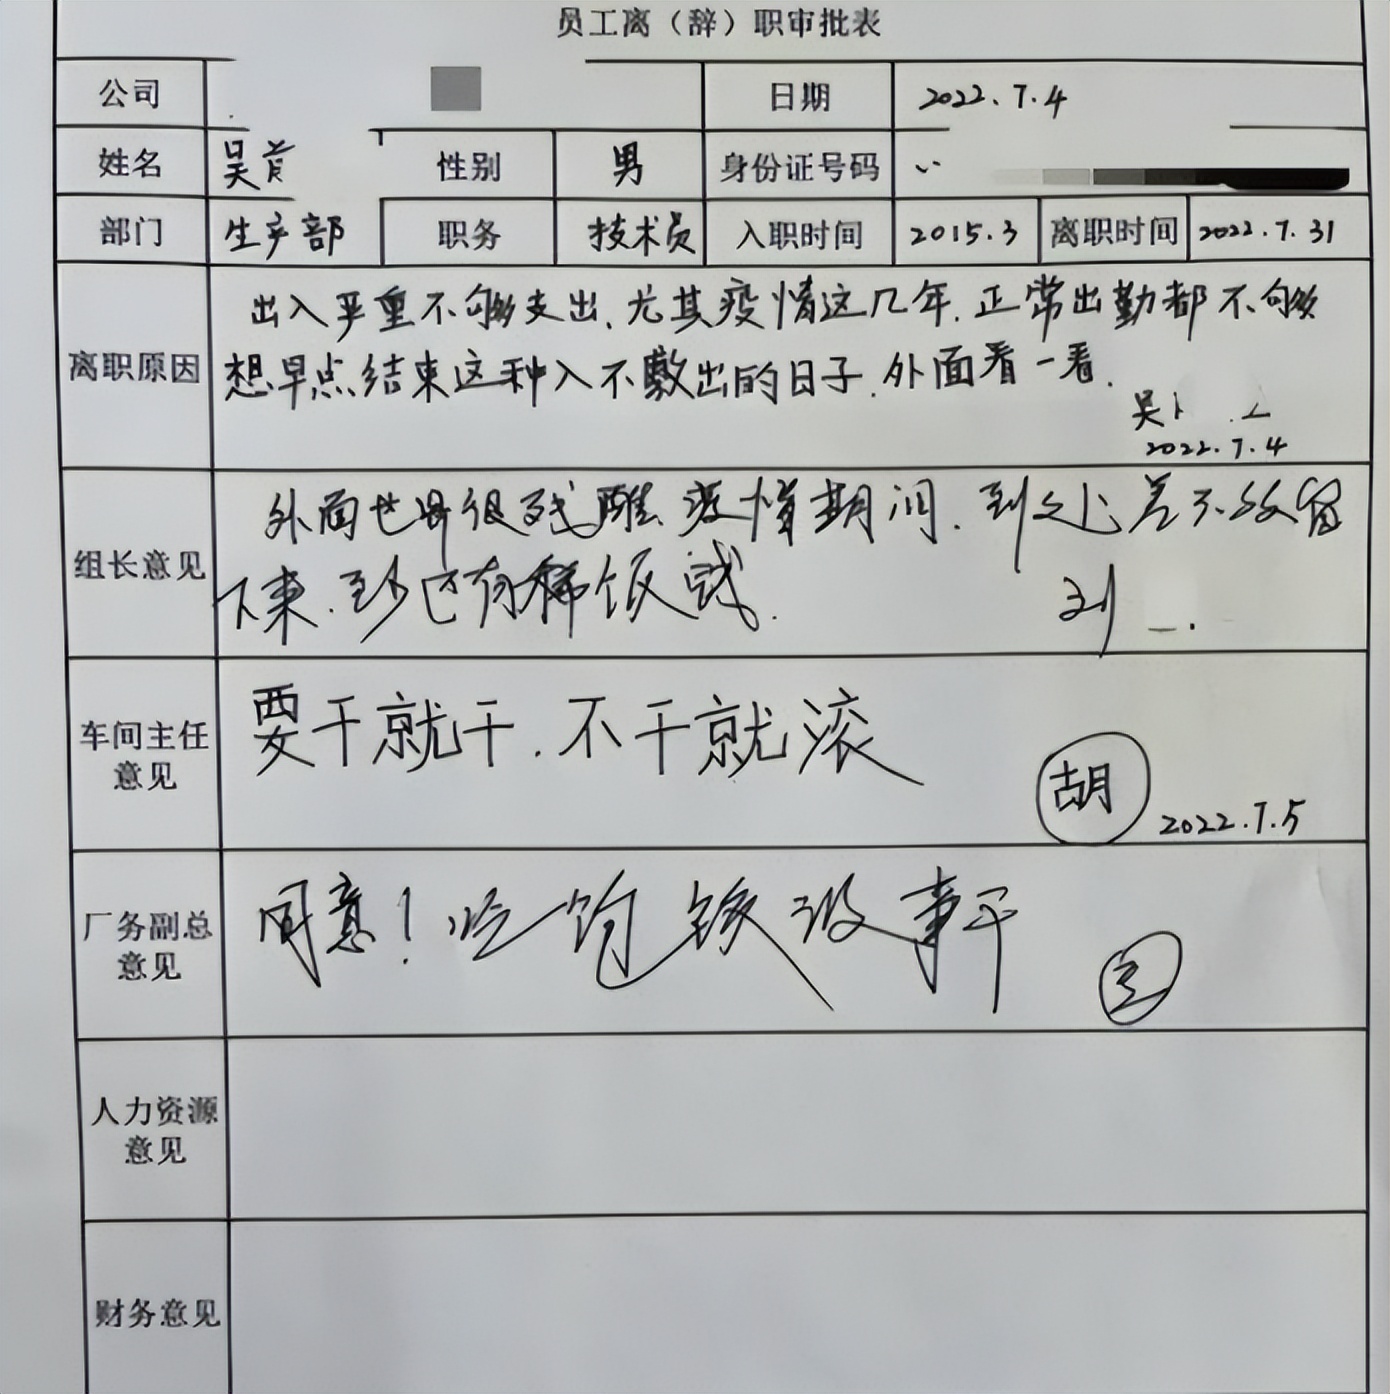 员工离（辞）职审批表
公司 日期 2022.7.4
姓名 吴 性别 男 身份证号码
部门 生产部 职务 技术员 入职时间 2015.3 离职时间 2022.7.31
离职原因
出入严重不够支出、尤其疫情这几年.正常出勤都不够
想早点结束这种入不敷出的日子.外面看一看.
吴
2022.7.4
组长意见
外面也是很残酷 疫情期间.到处差不多 留
下来.至少还有稀饭钱.
刘
车间主任
意见
要干就干.不干就滚
胡
2022.7.5
厂务副总
意见
同意！吃饱饭没事干
人力资源
意见
财务意见